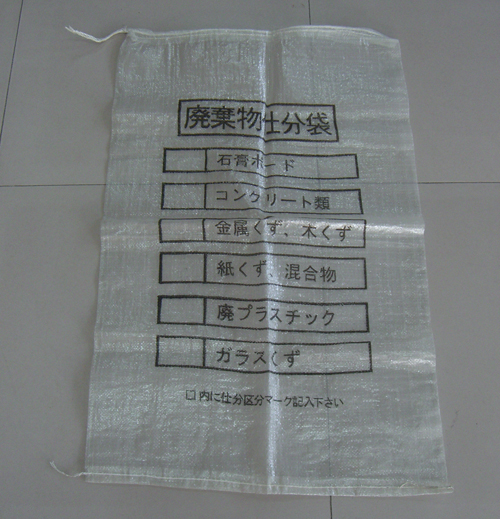 廃棄物仕分袋
石膏ボード
コンクリート類
金属くず、木くず
紙くず、混合物
廃プラスチック
ガラスくず
□内に仕分区分マーク記入下さい